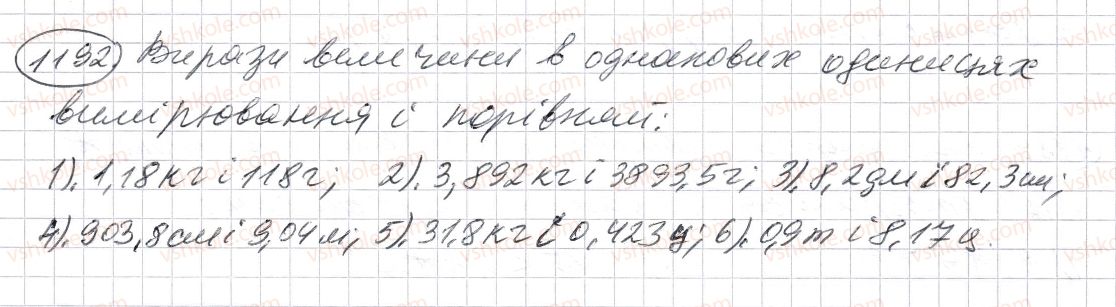 1192 Вирази величини в однакових одиницях
вимірювання і порівняй:
1). 1,18 кг і 118 г; 2). 3,892 кг і 3893,5 г; 3). 8,2 дм і 82,3 см;
4). 903,8 см і 9,04 м; 5). 31,8 кг і 0,423 ц; 6). 0,9 т і 8,17 ц.